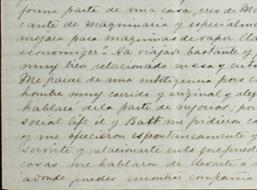 forme parte de una casa, creo de M
cante de maquinaria y especialme
mejora para maquinas de vapor Cla
economiser". Ha viajado bastante y
muy bien relacionado en esa y en
Me parece de una inteligencia poco c
hombre muy corrido y original y aleg
hablaré de la parte de negocios; por
social life él y Batt me pidieron ca
y me ofrecieron espontaneamente
servirte y relacionarte en lo que pued
casas. me hablaron de llevarte á
adonde puedes encontrar compañia